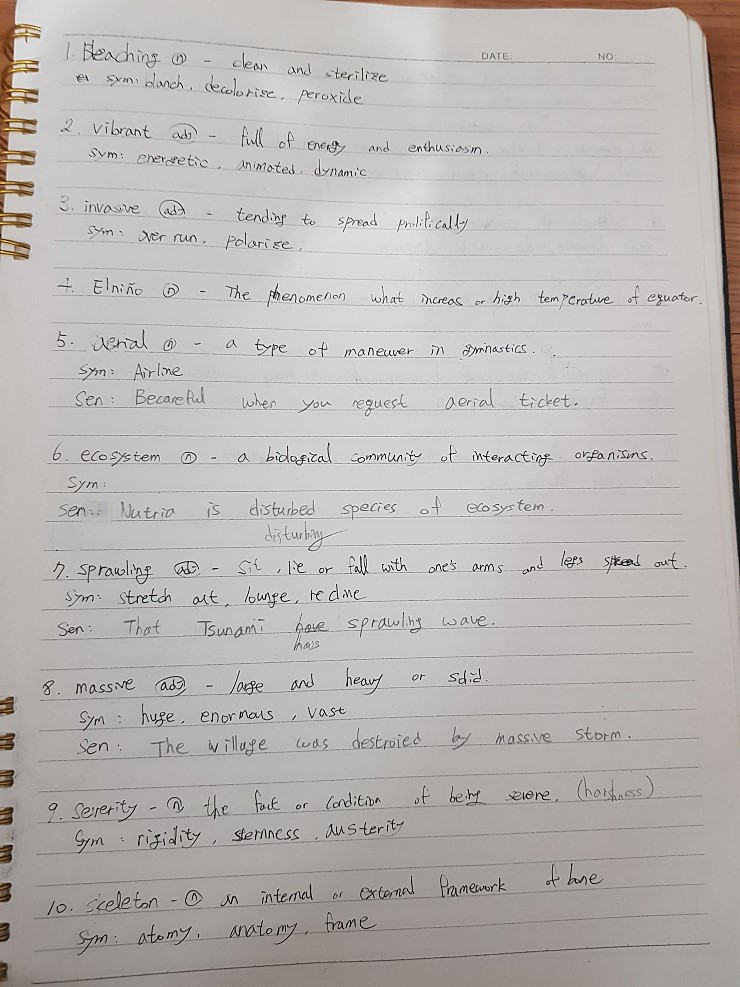 DATE: NO:
1. Bleaching (n) - clean and sterilize
sym: blanch, decolorise, peroxide
2. vibrant (adj) - full of energy and enthusiasm.
sym: energetic, animated, dynamic
3. invasive (adj) - tending to spread prolifically
sym: over run, polarise,
4. Elniño (n) - The phenomenon what increas or high temperature of equator.
5. aerial (n) - a type of maneuver in gymnastics.
sym: Airline
Sen: Becareful when you request aerial ticket.
6. ecosystem (n) - a biological community of interacting organisms.
Sym:
Sen: Nutria is disturbed species of ecosystem.
disturbing
7. sprawling (adj) - sit, lie or fall with one's arms and legs spread out.
Sym: stretch out, lounge, recline
Sen: That Tsunami have sprawling wave.
has
8. massive (adj) - large and heavy or solid.
Sym: huge, enormous, vast
Sen: The village was destroied by massive storm.
9. Severity - (n) the fact or condition of being severe. (harshness)
Sym: rigidity, sternness, austerity
10. skeleton - (n) an internal or external framework of bone
Sym: atomy, anatomy, frame